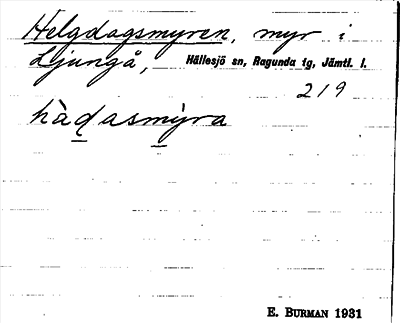 Helgdagsmyren, myr i
Ljungå, Hällesjö sn, Ragunda tg, Jämtl. l.
219
hàd̲asm̲ỳra
E. BURMAN 1931